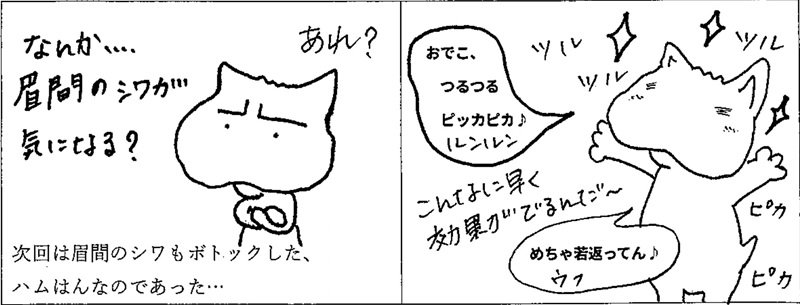 ツル
ツル
ツル
おでこ、
つるつる
ピッカピカ♪
ルンルン
こんなに早く
効果がでるんだ～
めちゃ若返ってん♪
ウフ
ピカ
ピカ
あれ？
なんか....
眉間のシワが
気になる？
次回は眉間のシワもボトックした、
ハムはんなのであった…